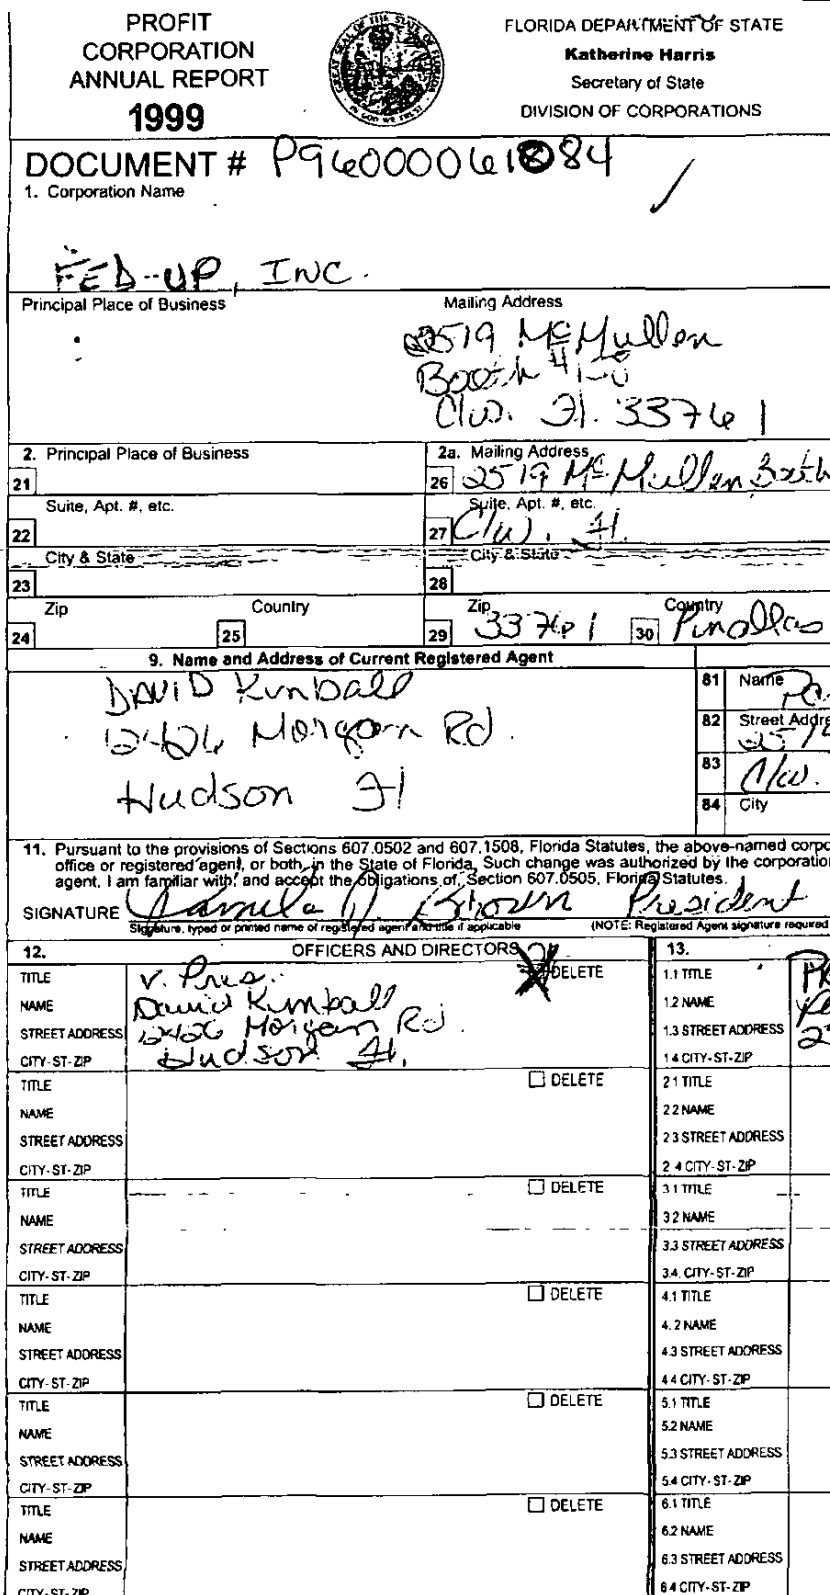 PROFIT
CORPORATION
ANNUAL REPORT
1999
FLORIDA DEPARTMENT OF STATE
Katherine Harris
Secretary of State
DIVISION OF CORPORATIONS
DOCUMENT # P96000061884
1. Corporation Name
FED-UP, INC.
Principal Place of Business
Mailing Address
2519 McMullen
Booth
Clw. Fl. 33761
2. Principal Place of Business
2a. Mailing Address
21
26 2519 McMullen Booth
Suite, Apt. #, etc.
Suite, Apt. #, etc.
22
27 Clw. Fl.
City & State
City & State
23
28
Zip
Country
Zip
Country
24
25
29 33761
30 Pinellas
9. Name and Address of Current Registered Agent
David Kimball
12426 Morgan Rd.
Hudson Fl
81 Name
82 Street Addre
83 Clw.
84 City
11. Pursuant to the provisions of Sections 607.0502 and 607.1508, Florida Statutes, the above-named corpo
office or registered agent, or both, in the State of Florida. Such change was authorized by the corporation
agent. I am familiar with, and accept the obligations of, Section 607.0505, Florida Statutes.
SIGNATURE Pamela D. Brown President
Signature, typed or printed name of registered agent and title if applicable
(NOTE: Registered Agent signature required
12. OFFICERS AND DIRECTORS
13.
TITLE V. Pres. DELETE
NAME David Kimball
STREET ADDRESS 12426 Morgan Rd.
CITY-ST-ZIP Hudson Fl.
1.1 TITLE
1.2 NAME
1.3 STREET ADDRESS
1.4 CITY-ST-ZIP
TITLE DELETE
NAME
STREET ADDRESS
CITY-ST-ZIP
2.1 TITLE
2.2 NAME
2.3 STREET ADDRESS
2.4 CITY-ST-ZIP
TITLE DELETE
NAME
STREET ADDRESS
CITY-ST-ZIP
3.1 TITLE
3.2 NAME
3.3 STREET ADDRESS
3.4. CITY-ST-ZIP
TITLE DELETE
NAME
STREET ADDRESS
CITY-ST-ZIP
4.1 TITLE
4.2 NAME
4.3 STREET ADDRESS
4.4 CITY-ST-ZIP
TITLE DELETE
NAME
STREET ADDRESS
CITY-ST-ZIP
5.1 TITLE
5.2 NAME
5.3 STREET ADDRESS
5.4 CITY-ST-ZIP
TITLE DELETE
NAME
STREET ADDRESS
CITY-ST-ZIP
6.1 TITLE
6.2 NAME
6.3 STREET ADDRESS
6.4 CITY-ST-ZIP